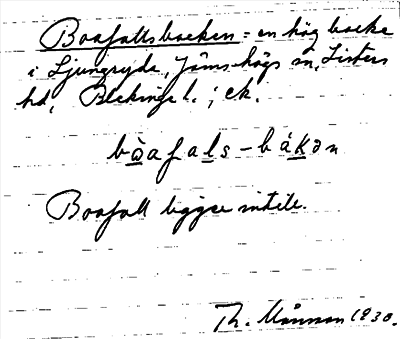 Boafallsbacken = en hög backe
i Ljungryda, Jämshögs sn, Listers
hd, Blekinge l.; ek.
bòafals-bákən
Boafall ligger intill.
Th. Månsson 1930.